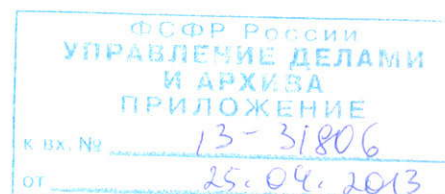 ФСФР России
УПРАВЛЕНИЕ ДЕЛАМИ
И АРХИВА
ПРИЛОЖЕНИЕ
К ВХ. № 13-31806
ОТ 25.04.2013